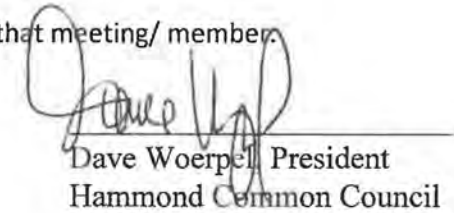 that meeting/ member.
Dave Woerpel, President
Hammond Common Council